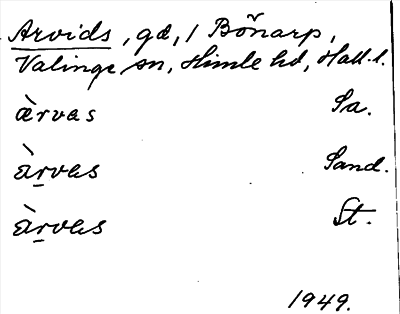 Arvids, gd, 1 Bönarp,
Valinge sn, Himle hd, Hall. l.
ærvas Sa.
àrvas Sand.
àrvas St.
1949.